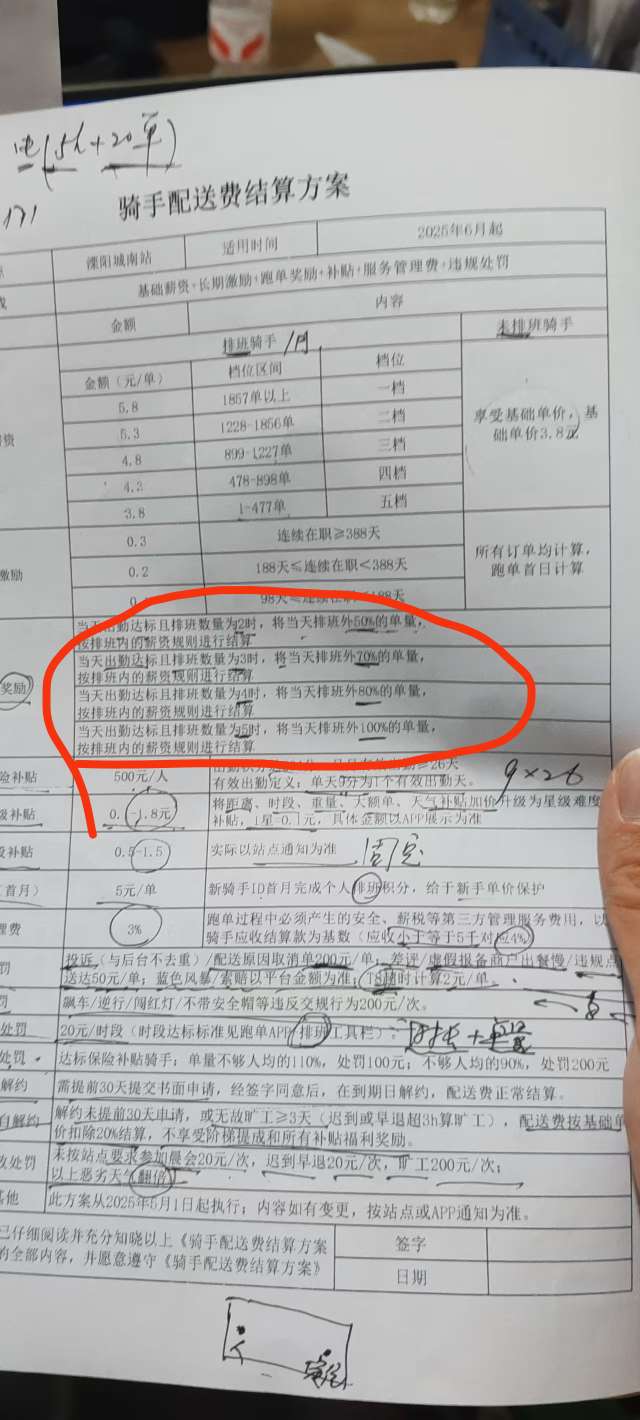 (5h+20单)
171
骑手配送费结算方案
溧阳城南站 适用时间 2025年6月起
基础薪资+长期激励+跑单奖励+补贴+服务管理费+违规处罚
金额 内容
排班骑手/月 未排班骑手
金额(元/单) 档位区间 档位
5.8 1857单以上 一档
5.3 1228-1856单 二档
4.8 899-1227单 三档
4.2 478-898单 四档
3.8 1-477单 五档
享受基础单价,基
础单价3.8元
0.3 连续在职≥388天
0.2 188天≤连续在职<388天
98天≤连续在职<188天
所有订单均计算,
跑单首日计算
激励
奖励
当天出勤达标且排班数量为2时,将当天排班外50%的单量,
按排班内的薪资规则进行结算
当天出勤达标且排班数量为3时,将当天排班外70%的单量,
按排班内的薪资规则进行结算
当天出勤达标且排班数量为4时,将当天排班外80%的单量,
按排班内的薪资规则进行结算
当天出勤达标且排班数量为5时,将当天排班外100%的单量,
按排班内的薪资规则进行结算
险补贴 500元/人
有效出勤定义:单天9分为1个有效出勤天。
9×26
级补贴 0.1-1.8元 将距离、时段、重量、大额单、天气补贴加价升级为星级难度
补贴,1星=0.1元,具体金额以APP展示为准
段补贴 0.5-1.5 实际以站点通知为准 固定
(首月) 5元/单 新骑手ID首月完成个人排班积分,给于新手单价保护
理费 3% 跑单过程中必须产生的安全、薪税等第三方管理服务费用,以
骑手应收结算款为基数(应收小于等于5千对应4%)
罚 投诉(与后台不去重)/配送原因取消单200元/单;差评/虚假报备商户出餐慢/违规点
送达50元/单;蓝色风暴/索赔以平台金额为准;T8超时计算2元/单
罚 飙车/逆行/闯红灯/不带安全帽等违反交规行为200元/次。
处罚 20元/时段(时段达标标准见跑单APP排班工具栏)。
处罚 达标保险补贴骑手:单量不够人均的110%,处罚100元;不够人均的90%,处罚200元
解约 需提前30天提交书面申请,经签字同意后,在到期日解约,配送费正常结算。
自解约 解约未提前30天申请,或无故旷工≥3天(迟到或早退超3h算旷工),配送费按基础单
价扣除20%结算,不享受阶梯提成和所有补贴福利奖励。
处罚 未按站点要求参加晨会20元/次,迟到早退20元/次,旷工200元/次;
以上恶劣天气翻倍
其他 此方案从2025年5月1日起执行;内容如有变更,按站点或APP通知为准。
已仔细阅读并充分知晓以上《骑手配送费结算方案
的全部内容,并愿意遵守《骑手配送费结算方案》
签字
日期